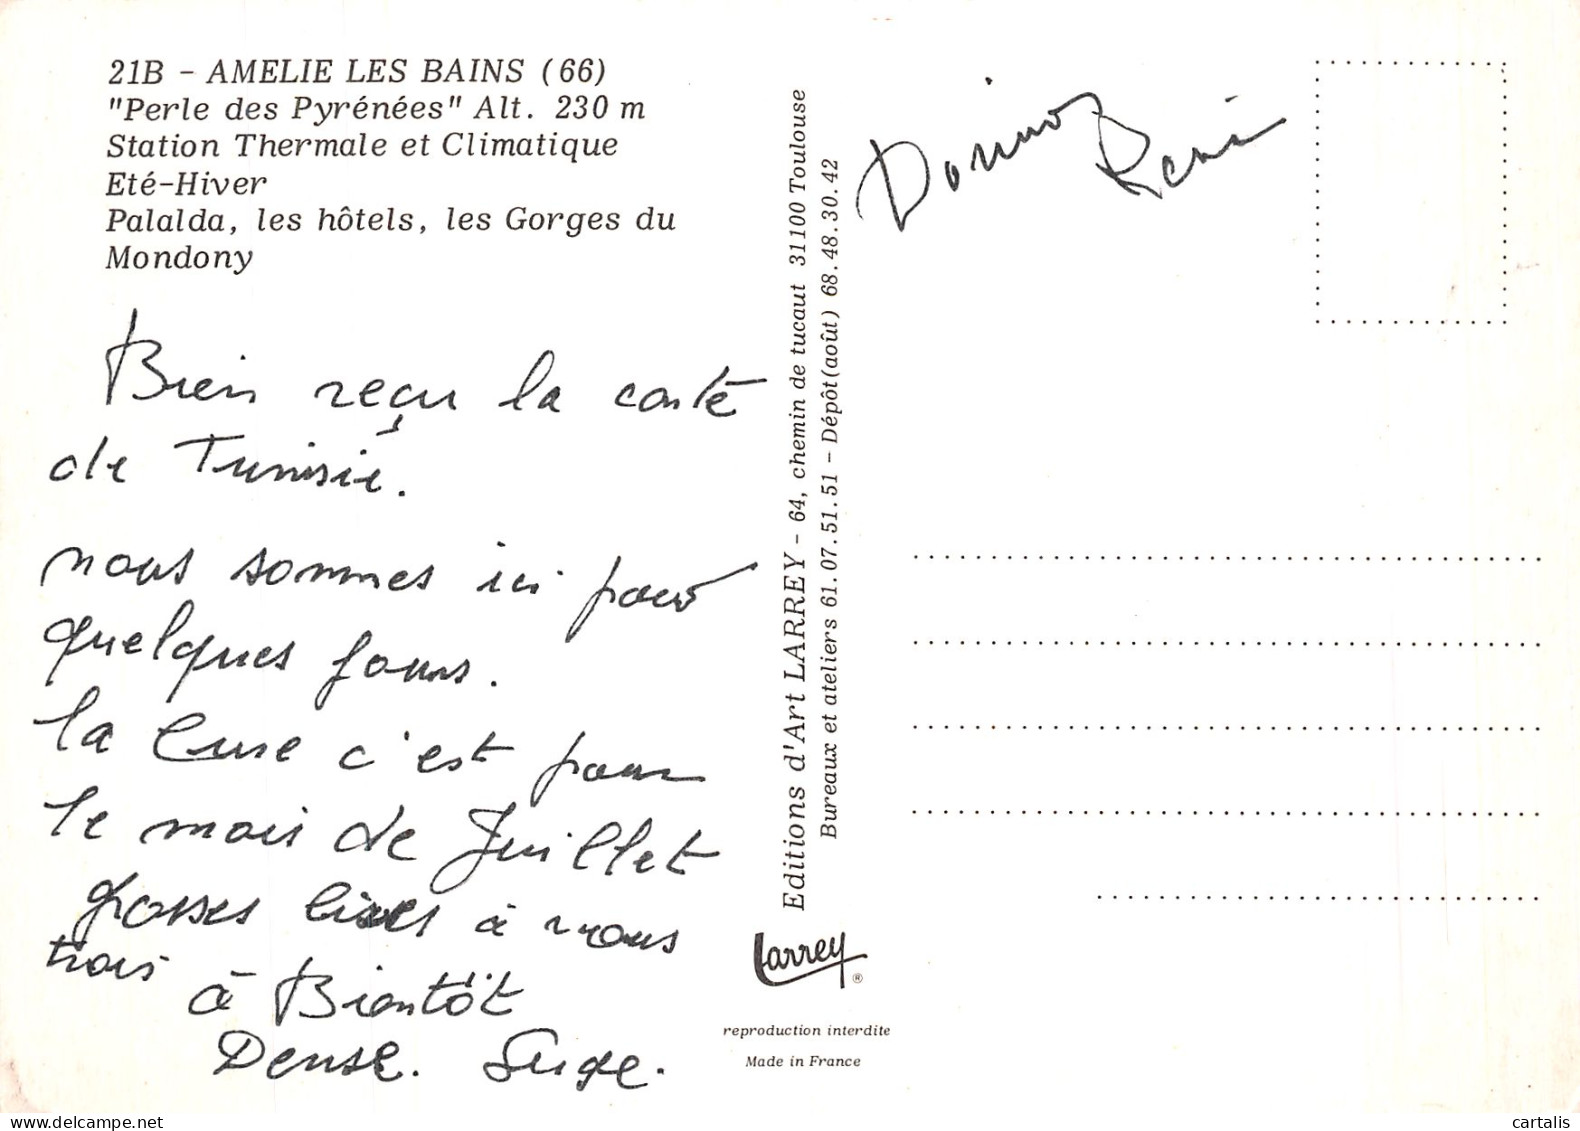 21B - AMELIE LES BAINS (66)
"Perle des Pyrénées" Alt. 230 m
Station Thermale et Climatique
Eté-Hiver
Palalda, les hôtels, les Gorges du
Mondony
Bien reçu la carte
de Tunisie.
nous sommes ici pour
quelques jours.
la Cure c'est pour
le mois de Juillet
grosses bises à vous
trois
à Bientôt
Denise. Serge.
Editions d'Art LARREY - 64, chemin de tucaut 31100 Toulouse
Bureaux et ateliers 61.07.51.51 - Dépôt(août) 68.48.30.42
Larrey ®
reproduction interdite
Made in France
delcampe.net
cartalis